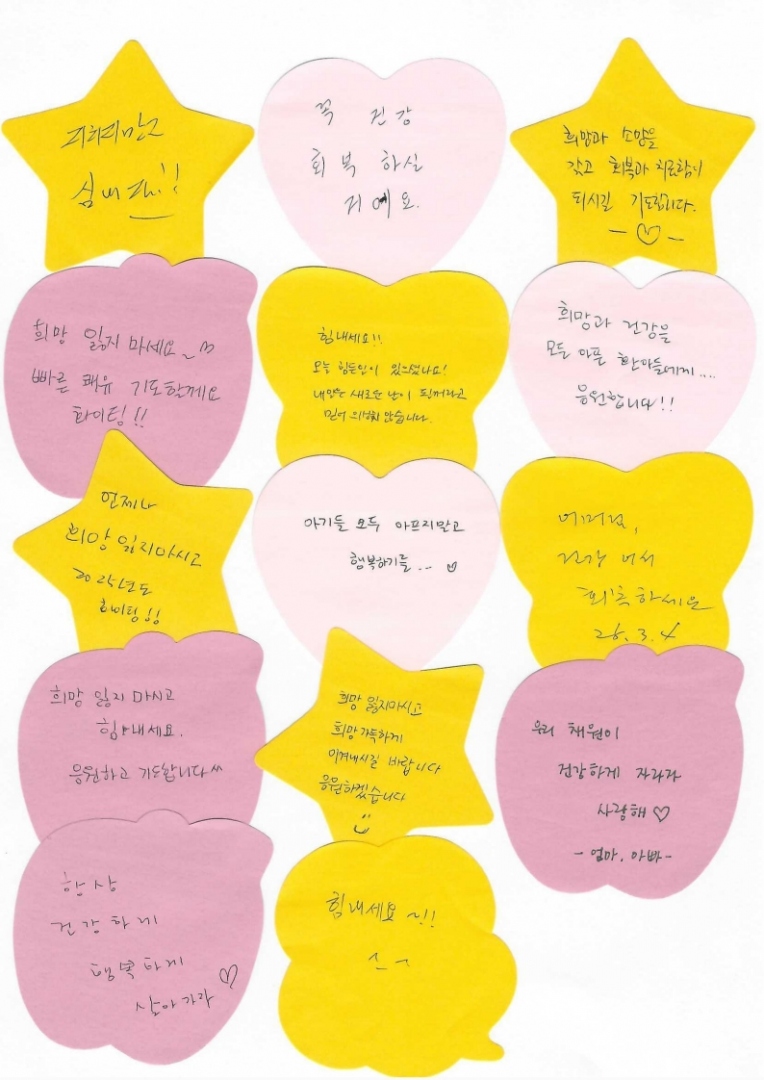 힘내
꼭 건강
회복 하실
거예요.
희망과 소망을
갖고 회복과 치료함이
되시길 기도합니다.
희망 잃지 마세요
빠른 쾌유 기도할게요
화이팅!!
힘내세요!!
오늘 힘든일이 있으셨나요!
내일은 새로운 날이
믿어 의심치 않습니다.
희망과 건강을
모든 아픈 환아들에게....
응원합니다!!
언제나
희망 잃지마시고
2025년도
화이팅!!
아기들 모두 아프지말고
행복하기를...
어머님,
건강 어서
회복하세요
25. 3. 4
희망 잃지 마시고
힘내세요.
응원하고 기도합니다^^
희망 잃지마시고
희망가득하게
이겨내시길 바랍니다
응원하겠습니다
우리 채원이
건강하게 자라라
사랑해♡
- 엄마, 아빠 -
항상
건강하게
행복하게
살아가라
힘내세요~!!